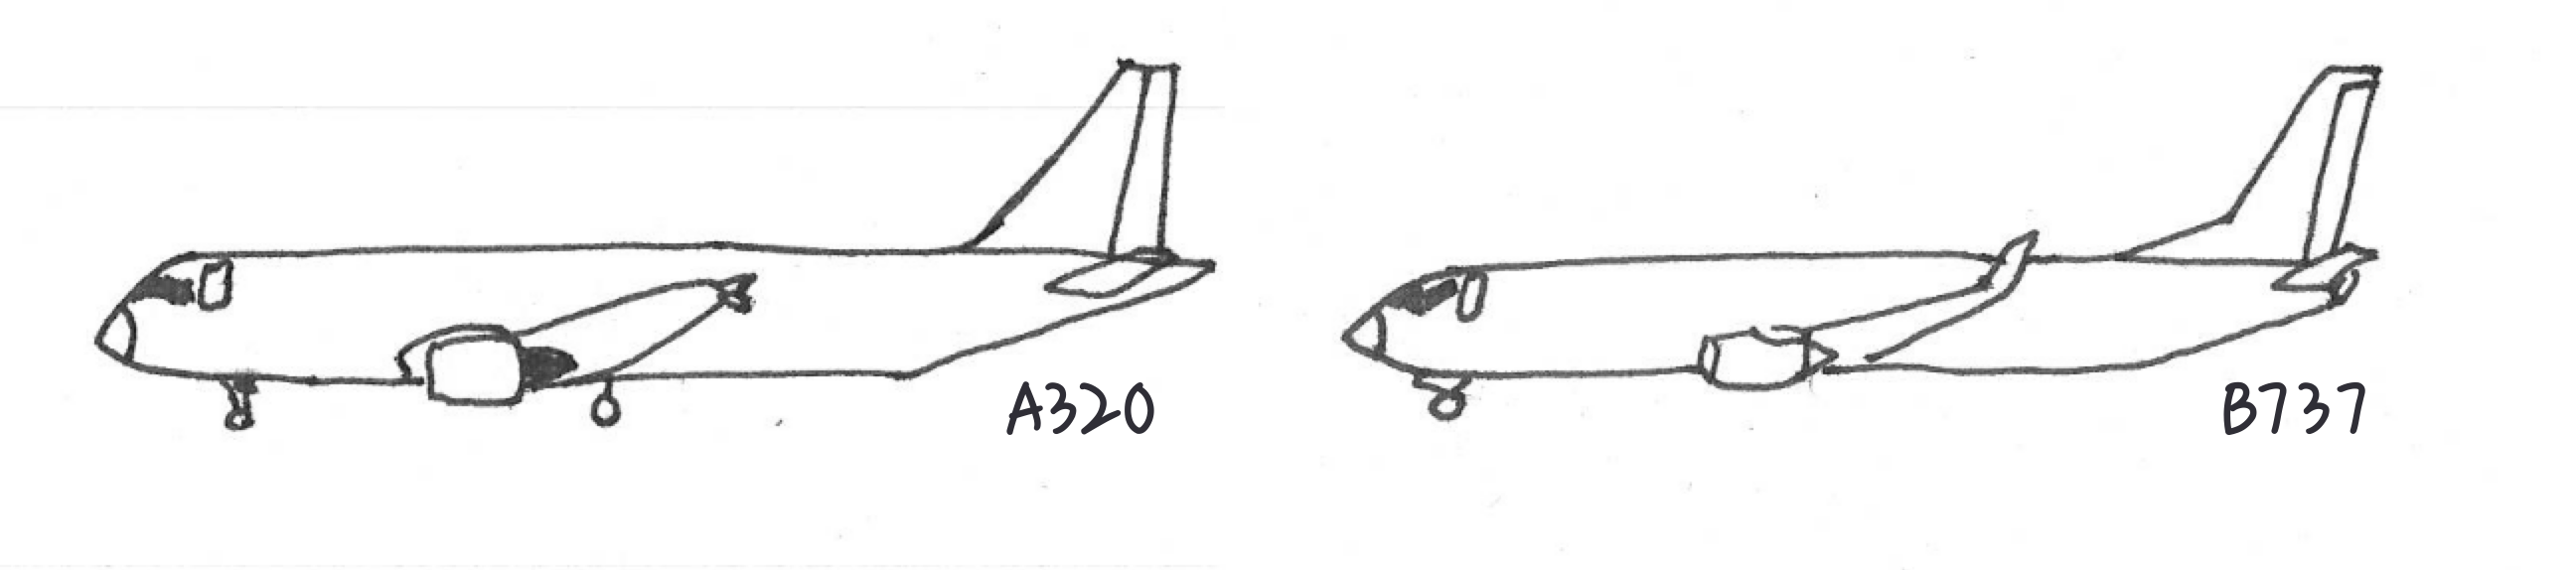 A320
B737